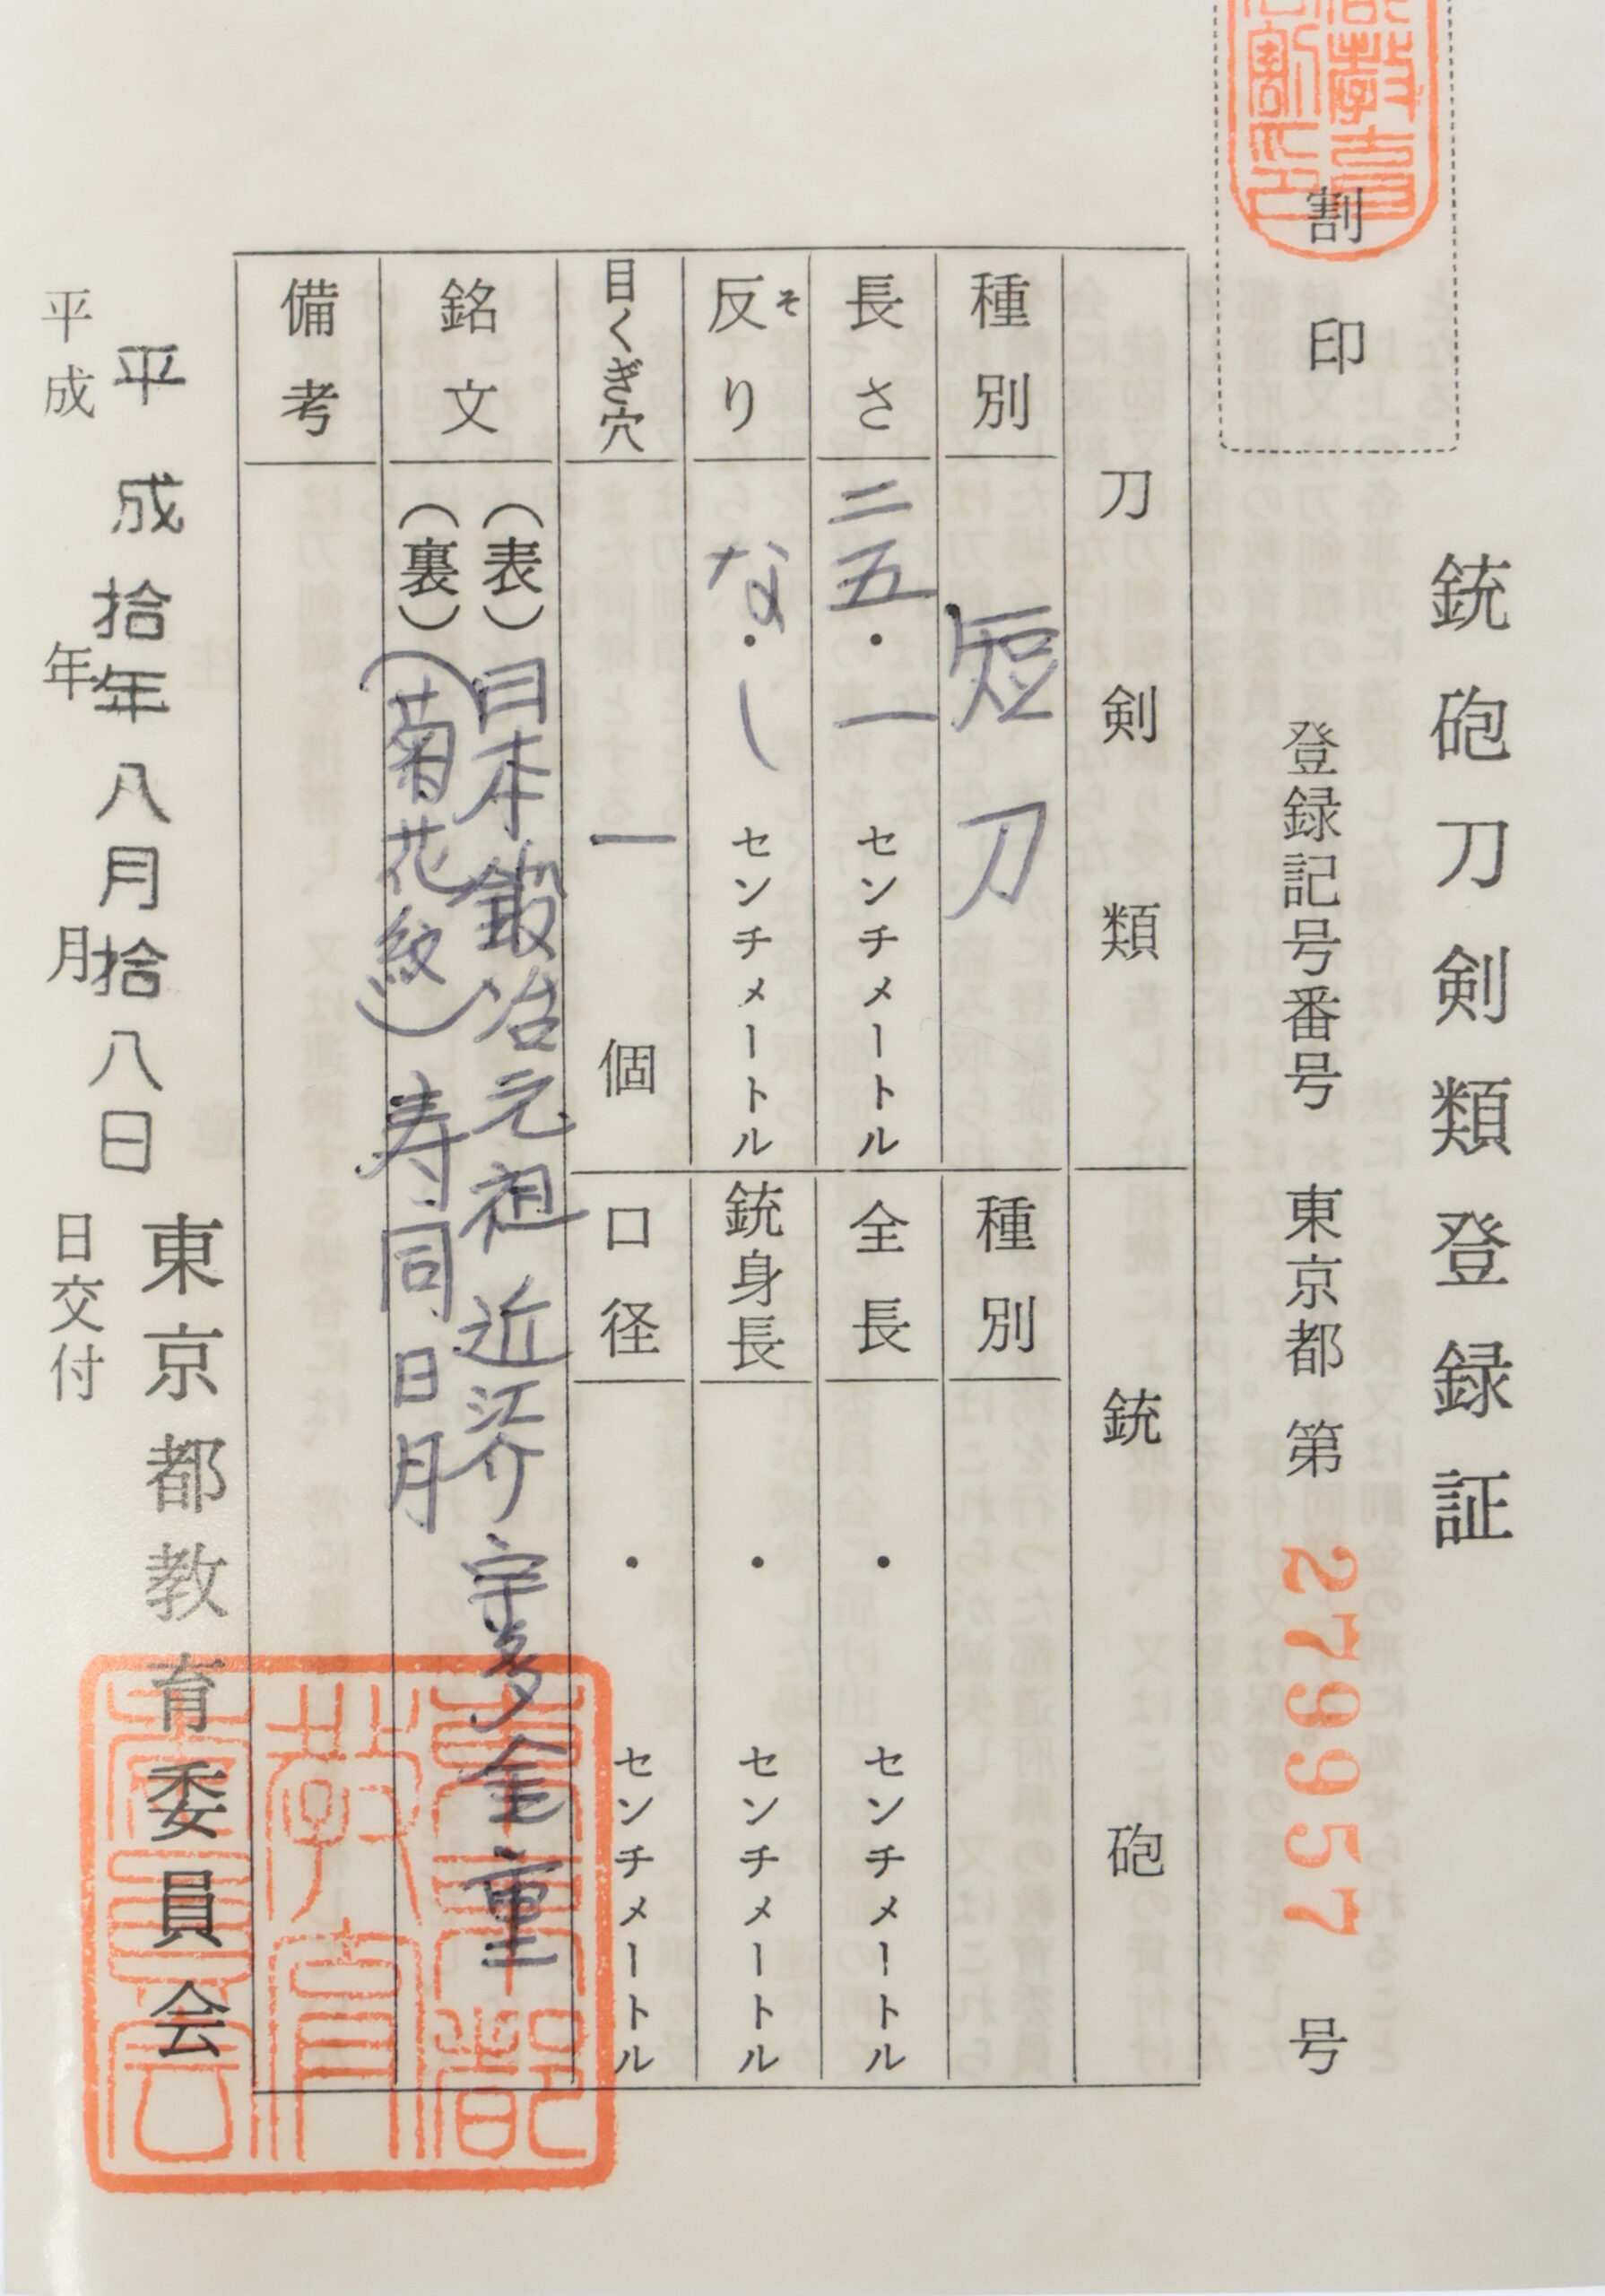 銃砲刀剣類登録証
割印
登録記号番号 東京都 第 279957 号
刀剣類
銃砲
種別 短刀
種別
長さ 二五・一 センチメートル
全長 ・ センチメートル
反り な・し センチメートル
そ
銃身長 ・ センチメートル
目くぎ穴 一 個
口径 ・ センチメートル
銘文 (表) 日本鍛冶元祖 近江介宇多全重
(裏) (菊花紋) 寿 同日月
備考
平成拾年八月拾八日
東京都教育委員会
平成 年 月 日交付